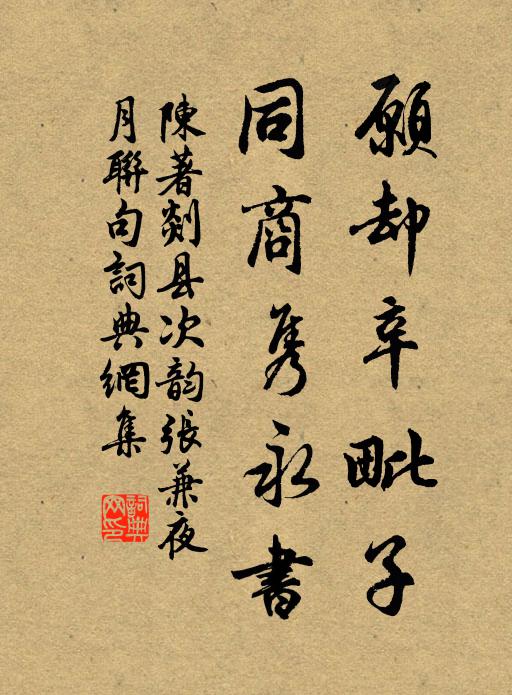 願却辛毗子
同商隽永書
陳著剡县次韵張兼夜
月聯句詞典網集
詞典網印